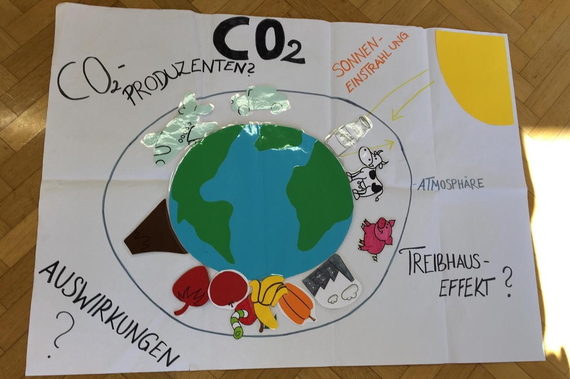 CO2
CO2-
PRODUZENTEN?
SONNEN-
EINSTRAHLUNG
ATMOSPHÄRE
TREIBHAUS-
EFFEKT?
AUSWIRKUNGEN
?